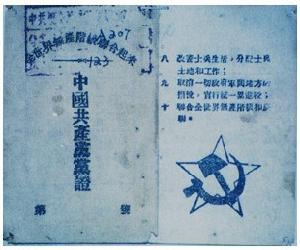 A207
全世界無產階級聯合起來
123
中國共產黨黨證
第 號
八 改善士兵生活,分配士兵
土地和工作;
九 取消一切政府軍閥地方的
捐稅,實行統一累進稅;
十 聯合全世界無產階級和蘇
聯。